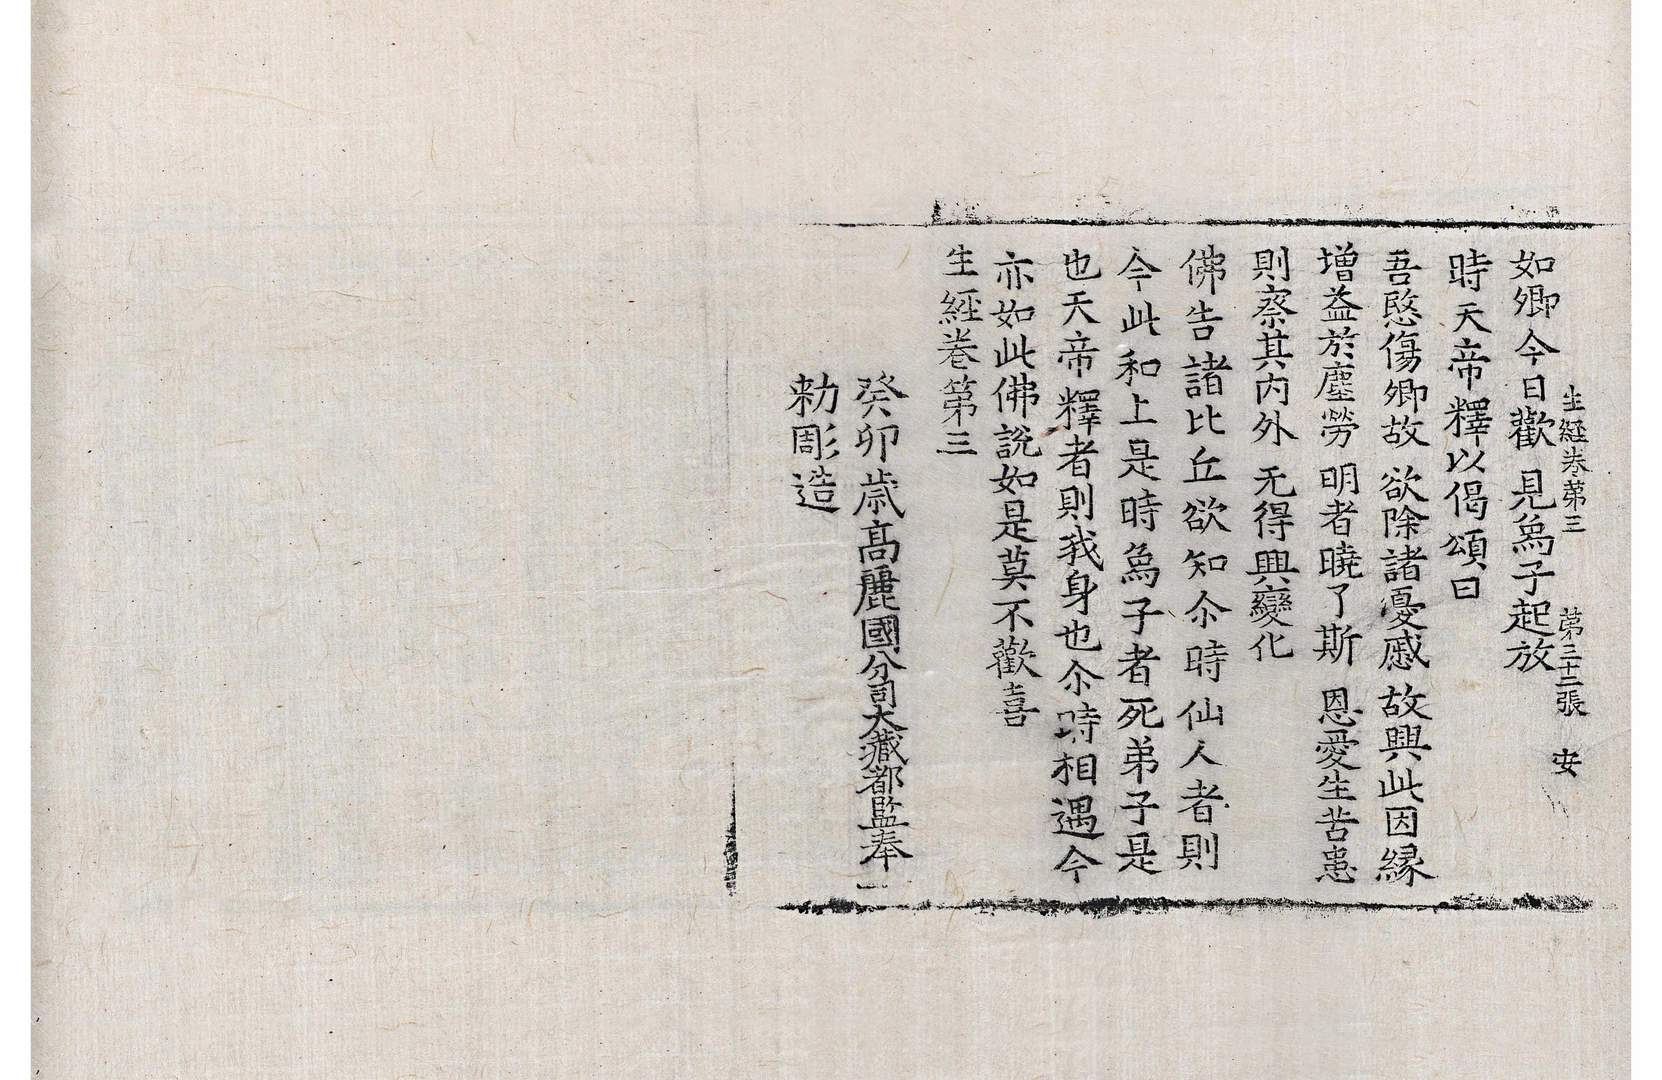 生經卷第三　第三十二張　安
如卿今日歡　見爲子起放
時天帝釋以偈頌曰
吾愍傷卿故　欲除諸憂慼　故興此因緣
增益於塵勞　明者曉了斯　恩愛生苦患
則察其內外　无得興變化
佛告諸比丘欲知尒時仙人者則
今此和上是時爲子者死弟子是
也天帝釋者則我身也尒時相遇今
亦如此佛說如是莫不歡喜
生經卷第三
癸卯歲高麗國分司大藏都監奉
勅彫造